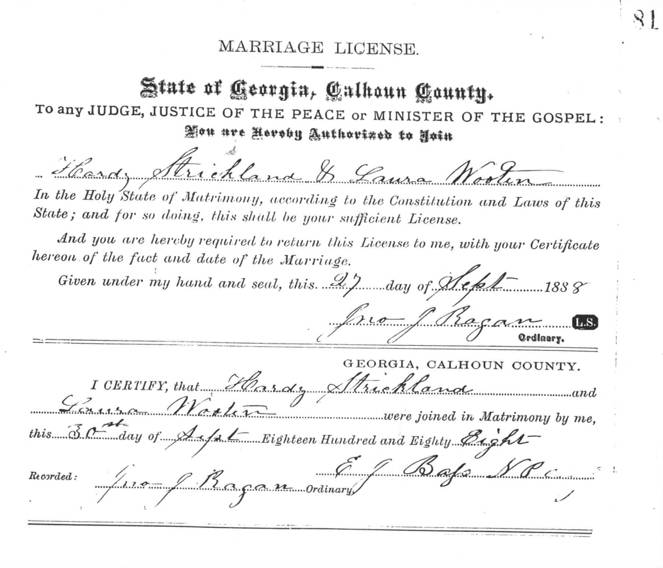 81
MARRIAGE LICENSE.
State of Georgia, Calhoun County.
To any JUDGE, JUSTICE OF THE PEACE or MINISTER OF THE GOSPEL:
You are Hereby Authorized to Join
Hardy Strickland & Laura Wooten
In the Holy State of Matrimony, according to the Constitution and Laws of this
State; and for so doing, this shall be your sufficient License.
And you are hereby required to return this License to me, with your Certificate
hereon of the fact and date of the Marriage.
Given under my hand and seal, this 27 day of Sept 1888
Jno J Ragan L.S.
Ordinary.
GEORGIA, CALHOUN COUNTY.
I CERTIFY, that Hardy Strickland and
Laura Wooten were joined in Matrimony by me,
this 30st day of Sept Eighteen Hundred and Eighty Eight
E J Bass N P c
Recorded: Jno J Ragan Ordinary